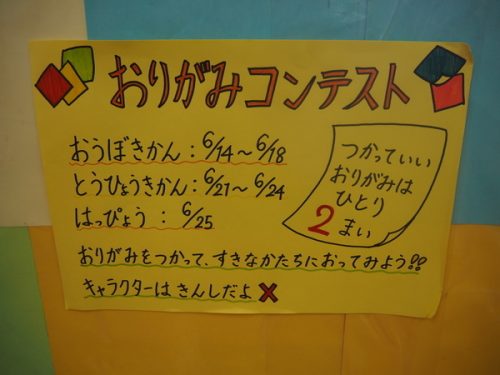 おりがみコンテスト
おうぼきかん：6/14～6/18
とうひょうきかん：6/21～6/24
はっぴょう：6/25
つかっていい
おりがみは
ひとり
2まい
おりがみをつかって、すきなかたちにおってみよう!!
キャラクターは きんしだよ ×